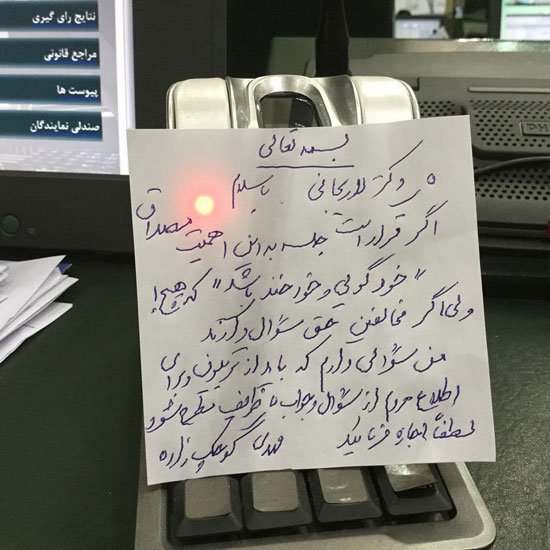 نتایج رای گیری
مراجع قانونی
پیوست ها
صندلی نمایندگان
بسمه تعالی
دکتر لاریجانی باسلام
اگر قرار است جلسه به این اهمیت مصداق
"خود گویی و خود خندی باشد" که هیچ!
ولی اگر مخالفین حق سؤال دارند
من سؤالی دارم که باید از تریبون و برای
اطلاع مردم از سؤال و جواب مطرح شود
لطفاً اجازه فرمائید مهدی کوچک زاده